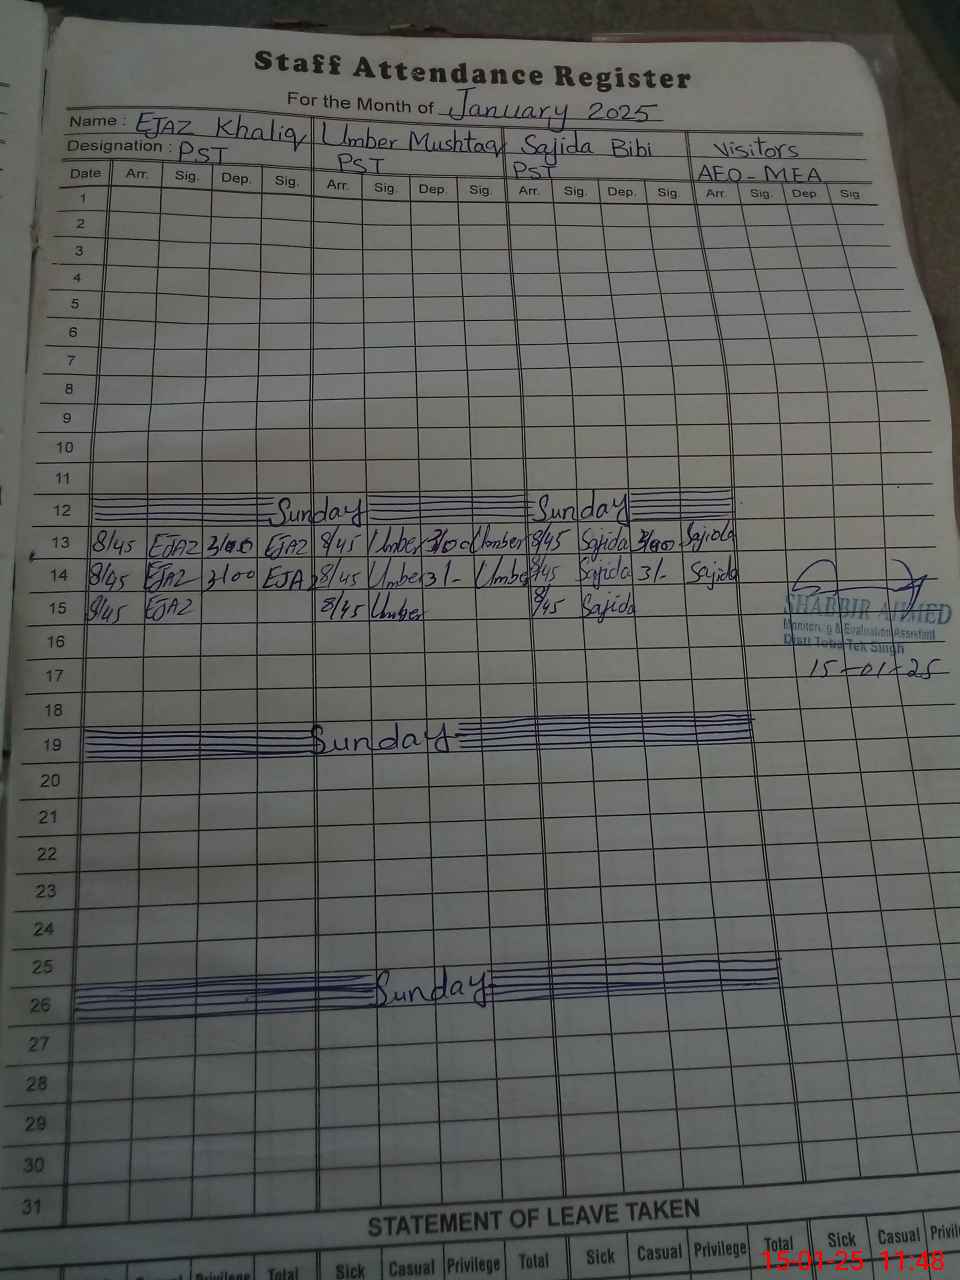 Staff Attendance Register
For the Month of January 2025
Name : EJAZ Khaliq Umber Mushtaq Sajida Bibi Visitors
Designation : PST PST PST AEO - MEA
Date Arr. Sig. Dep. Sig. Arr. Sig. Dep. Sig. Arr. Sig. Dep. Sig. Arr. Sig. Dep. Sig.
1
2
3
4
5
6
7
8
9
10
11
12 Sunday Sunday
13 8/45 EJAZ 3/00 EJAZ 8/45 Umber 3/00 Umber 8/45 Sajida 3/00 Sajida
14 8/45 EJAZ 3/00 EJAZ 8/45 Umber 3/- Umber 8/45 Sajida 3/- Sajida
15 8/45 EJAZ 8/45 Umber 8/45 Sajida
SHABBIR AHMED
Monitoring & Evaluation Assistant
Distt Toba Tek Singh
15-01-25
16
17
18
19 Sunday
20
21
22
23
24
25
26 Sunday
27
28
29
30
31
STATEMENT OF LEAVE TAKEN
Casual Privilege Total Sick Casual Privilege Total Sick Casual Privilege Total Sick Casual
15-01-25 11:48